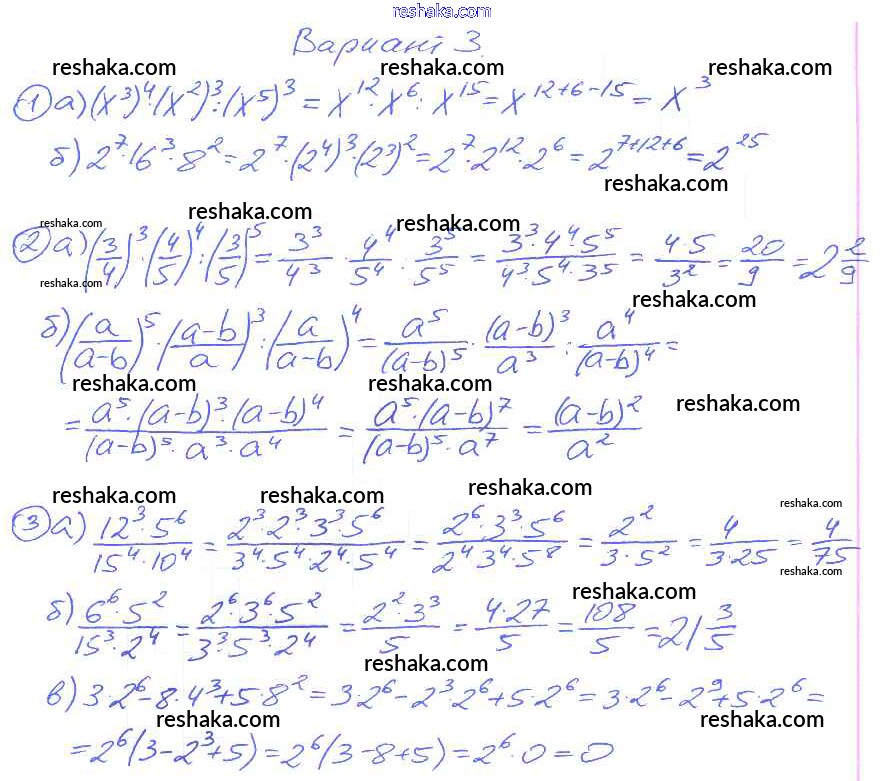 reshaka.com
Вариант 3.
reshaka.com reshaka.com reshaka.com
1 а) (x³)⁴·(x²)³:(x⁵)³ = x¹²·x⁶:x¹⁵ = x¹²⁺⁶⁻¹⁵ = x³
б) 2⁷·16³·8² = 2⁷·(2⁴)³·(2³)² = 2⁷·2¹²·2⁶ = 2⁷⁺¹²⁺⁶ = 2²⁵
reshaka.com
reshaka.com reshaka.com reshaka.com
2 а) (3/4)³·(4/5)⁴:(3/5)⁵ = 3³/4³ · 4⁴/5⁴ · 3⁵/5⁵ = 3³·4⁴·5⁵/4³·5⁴·3⁵ = 4·5/3² = 20/9 = 2 2/9
reshaka.com reshaka.com
б) (a/a-b)⁵·(a-b/a)³:(a/a-b)⁴ = a⁵/(a-b)⁵ · (a-b)³/a³ : a⁴/(a-b)⁴ =
reshaka.com reshaka.com reshaka.com
= a⁵·(a-b)³·(a-b)⁴/(a-b)⁵·a³·a⁴ = a⁵·(a-b)⁷/(a-b)⁵·a⁷ = (a-b)²/a²
reshaka.com reshaka.com reshaka.com reshaka.com
3 а) 12³·5⁶/15⁴·10⁴ = 2³·2³·3³·5⁶/3⁴·5⁴·2⁴·5⁴ = 2⁶·3³·5⁶/2⁴·3⁴·5⁸ = 2²/3·5² = 4/3·25 = 4/75
reshaka.com reshaka.com
б) 6⁶·5²/15³·2⁴ = 2⁶·3⁶·5²/3³·5³·2⁴ = 2²·3³/5 = 4·27/5 = 108/5 = 21 3/5
reshaka.com
в) 3·2⁶-8·4³+5·8² = 3·2⁶-2³·2⁶+5·2⁶ = 3·2⁶-2⁹+5·2⁶ =
reshaka.com reshaka.com
= 2⁶(3-2³+5) = 2⁶(3-8+5) = 2⁶·0 = 0